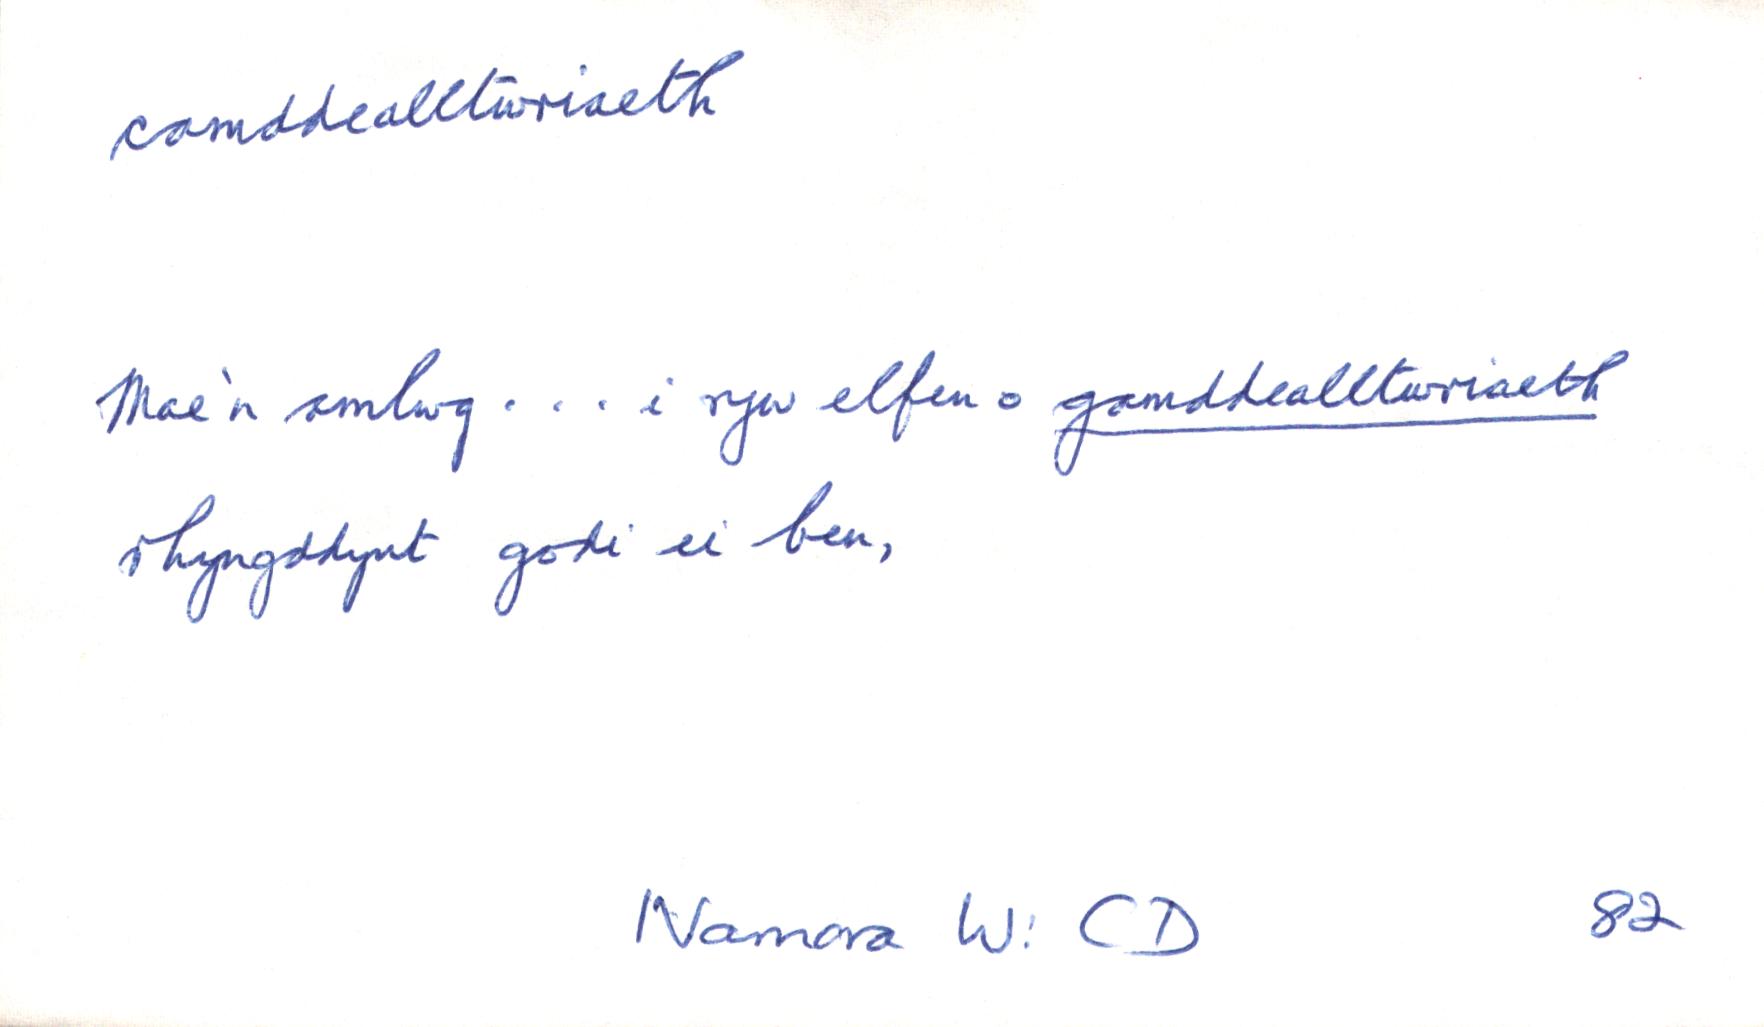 camddealltwriaeth
Mae'n amlwg . . . i ryw elfen o gamddealltwriaeth
rhyngddynt godi ei ben,
Namora W: CD 82